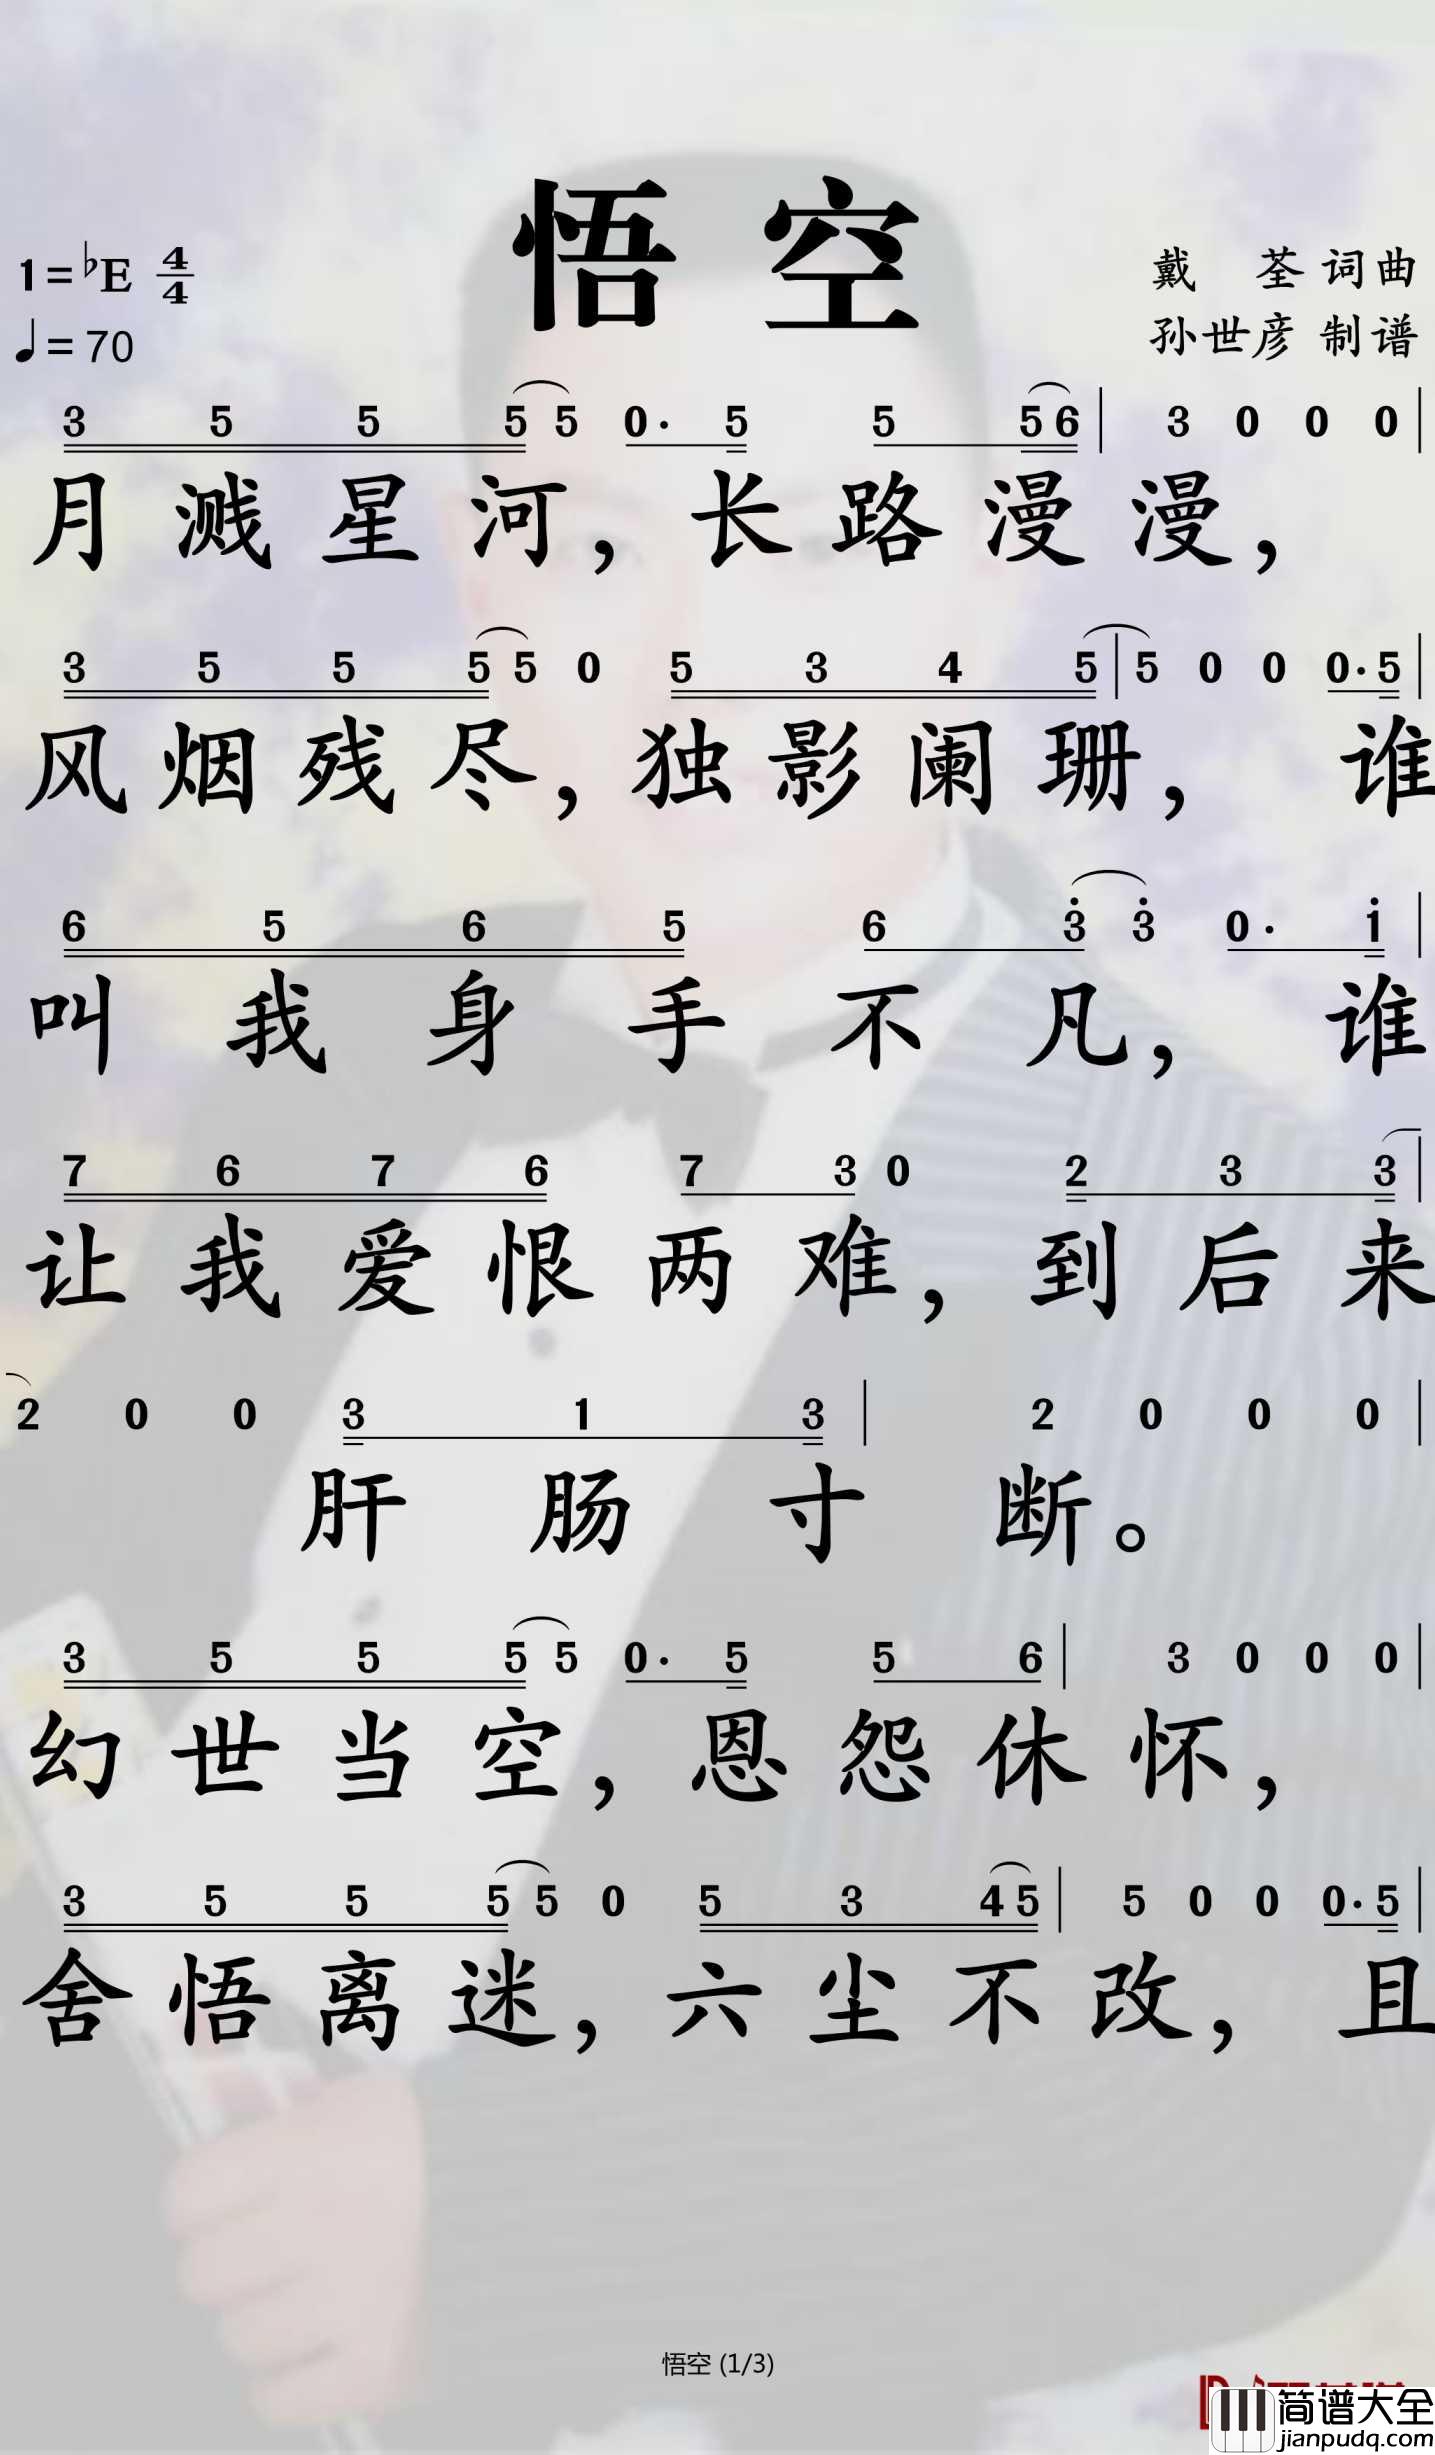 悟空
1=♭E 4/4
♩=70
戴 荃 词曲
孙世彦 制谱
3 5 5 5 5 0· 5 5 5 6 | 3 0 0 0 |
月溅星河，长路漫漫，
3 5 5 5 5 0 5 3 4 5 | 5 0 0 0·5 |
风烟残尽，独影阑珊，谁
6 5 6 5 6 3̇ 3̇ 0· 1̇ |
叫我身手不凡，谁
7 6 7 6 7 3 0 2 3 3 |
让我爱恨两难，到后来
2 0 0 3 1 3 | 2 0 0 0 |
肝肠寸断。
3 5 5 5 5 0· 5 5 6 | 3 0 0 0 |
幻世当空，恩怨休怀，
3 5 5 5 5 0 5 3 4 5 | 5 0 0 0·5 |
舍悟离迷，六尘不改，且
悟空 (1/3)
简谱大全
jianpudq.com